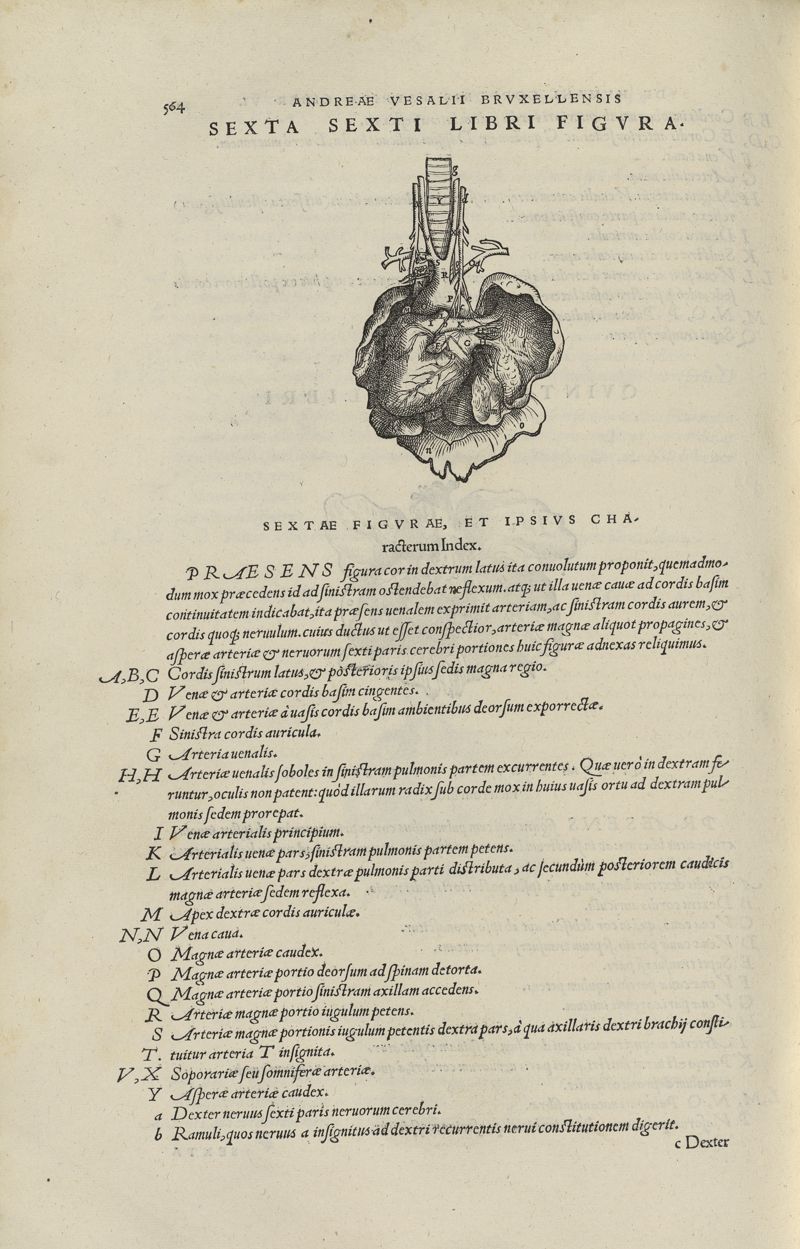 564
ANDREAE VESALII BRVXELLENSIS
SEXTA SEXTI LIBRI FIGVRA.
SEXTAE FIGVRAE, ET IPSIVS CHA-
racterum Index.
PRAESENS figura cor in dextrum latus ita conuolutum proponit, quemadmo-
dum mox præcedens id ad sinistram ostendebat reflexum. atq; ut illa uenæ cauæ ad cordis basim
continuitatem indicabat, ita præsens uenalem exprimit arteriam, ac sinistram cordis aurem, &
cordis quoq; neruulum. cuius ductus ut esset conspectior, arteriæ magnæ aliquot propagines, &
asperæ arteriæ & neruorum sexti paris cerebri portiones huic figuræ adnexas reliquimus.
A, B, C Cordis sinistrum latus, & pòsterioris ipsius sedis magna regio.
D Venæ & arteriæ cordis basim cingentes.
E, E Venæ & arteriæ à uasis cordis basim ambientibus deorsum exporrectæ.
F Sinistra cordis auricula.
G Arteria uenalis.
H, H Arteriæ uenalis soboles in sinistram pulmonis partem excurrentes. Quæ uerò in dextram fe-
runtur, oculis non patent: quòd illarum radix sub corde mox in huius uasis ortu ad dextram pul-
monis sedem prorepat.
I Venæ arterialis principium.
K Arterialis uenæ pars, sinistram pulmonis partem petens.
L Arterialis uenæ pars dextræ pulmonis parti distributa, ac secundùm posteriorem caudicis
magnæ arteriæ sedem reflexa.
M Apex dextræ cordis auriculæ.
N, N Vena caua.
O Magnæ arteriæ caudex.
P Magnæ arteriæ portio deorsum ad spinam detorta.
Q Magnæ arteriæ portio sinistram axillam accedens.
R Arteriæ magnæ portio iugulum petens.
S Arteriæ magnæ portionis iugulum petentis dextra pars, à qua axillaris dextri brachij consti-
T. tuitur arteria T insignita.
V, X Soporariæ seu somniferæ arteriæ.
Y Asperæ arteriæ caudex.
a Dexter neruus sexti paris neruorum cerebri.
b Ramuli, quos neruus a insignitus ad dextri recurrentis nerui constitutionem digerit.
c Dexter